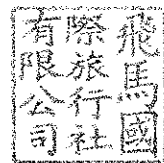 飛馬國
際旅行社
有限公司